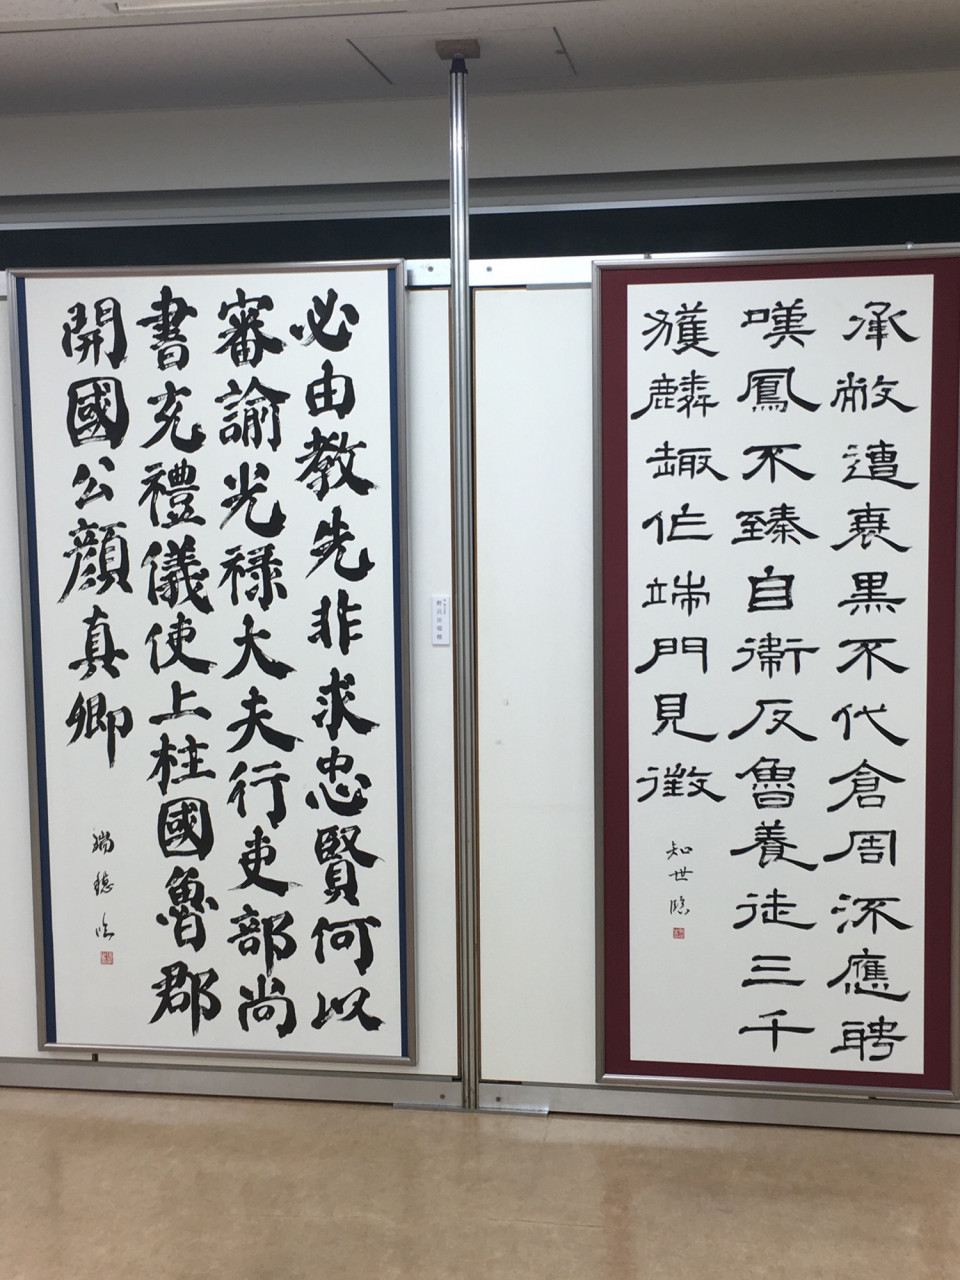 承敝遭衰黒不代倉周流應聘
嘆鳳不臻自衛反魯養徒三千
獲麟趣作端門見徴
知世臨
必由教先非求忠賢何以
審諭光禄大夫行吏部尚
書充禮儀使上柱國魯郡
開國公顔真卿
瑞穂臨